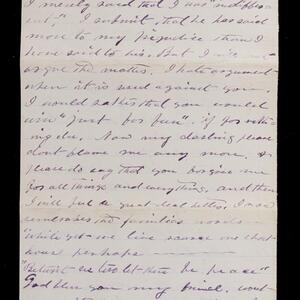 I merely said that I was "indiffer-
ent," I submit, that he has said
more to my prejudice than I
have said to his. But I
argue the matter. I hate argument
when it is used against you.
I would rather that you would
win "just for fun" if for noth-
ing else. Now my darling please
dont blame me any more, &
please do say that you forgive me
for all and everything, and then
I will feel a great deal better, I now
the familiar words
"While yet we live scarce one short
hour perhaps
"Between us two let there be peace"
God bless you my